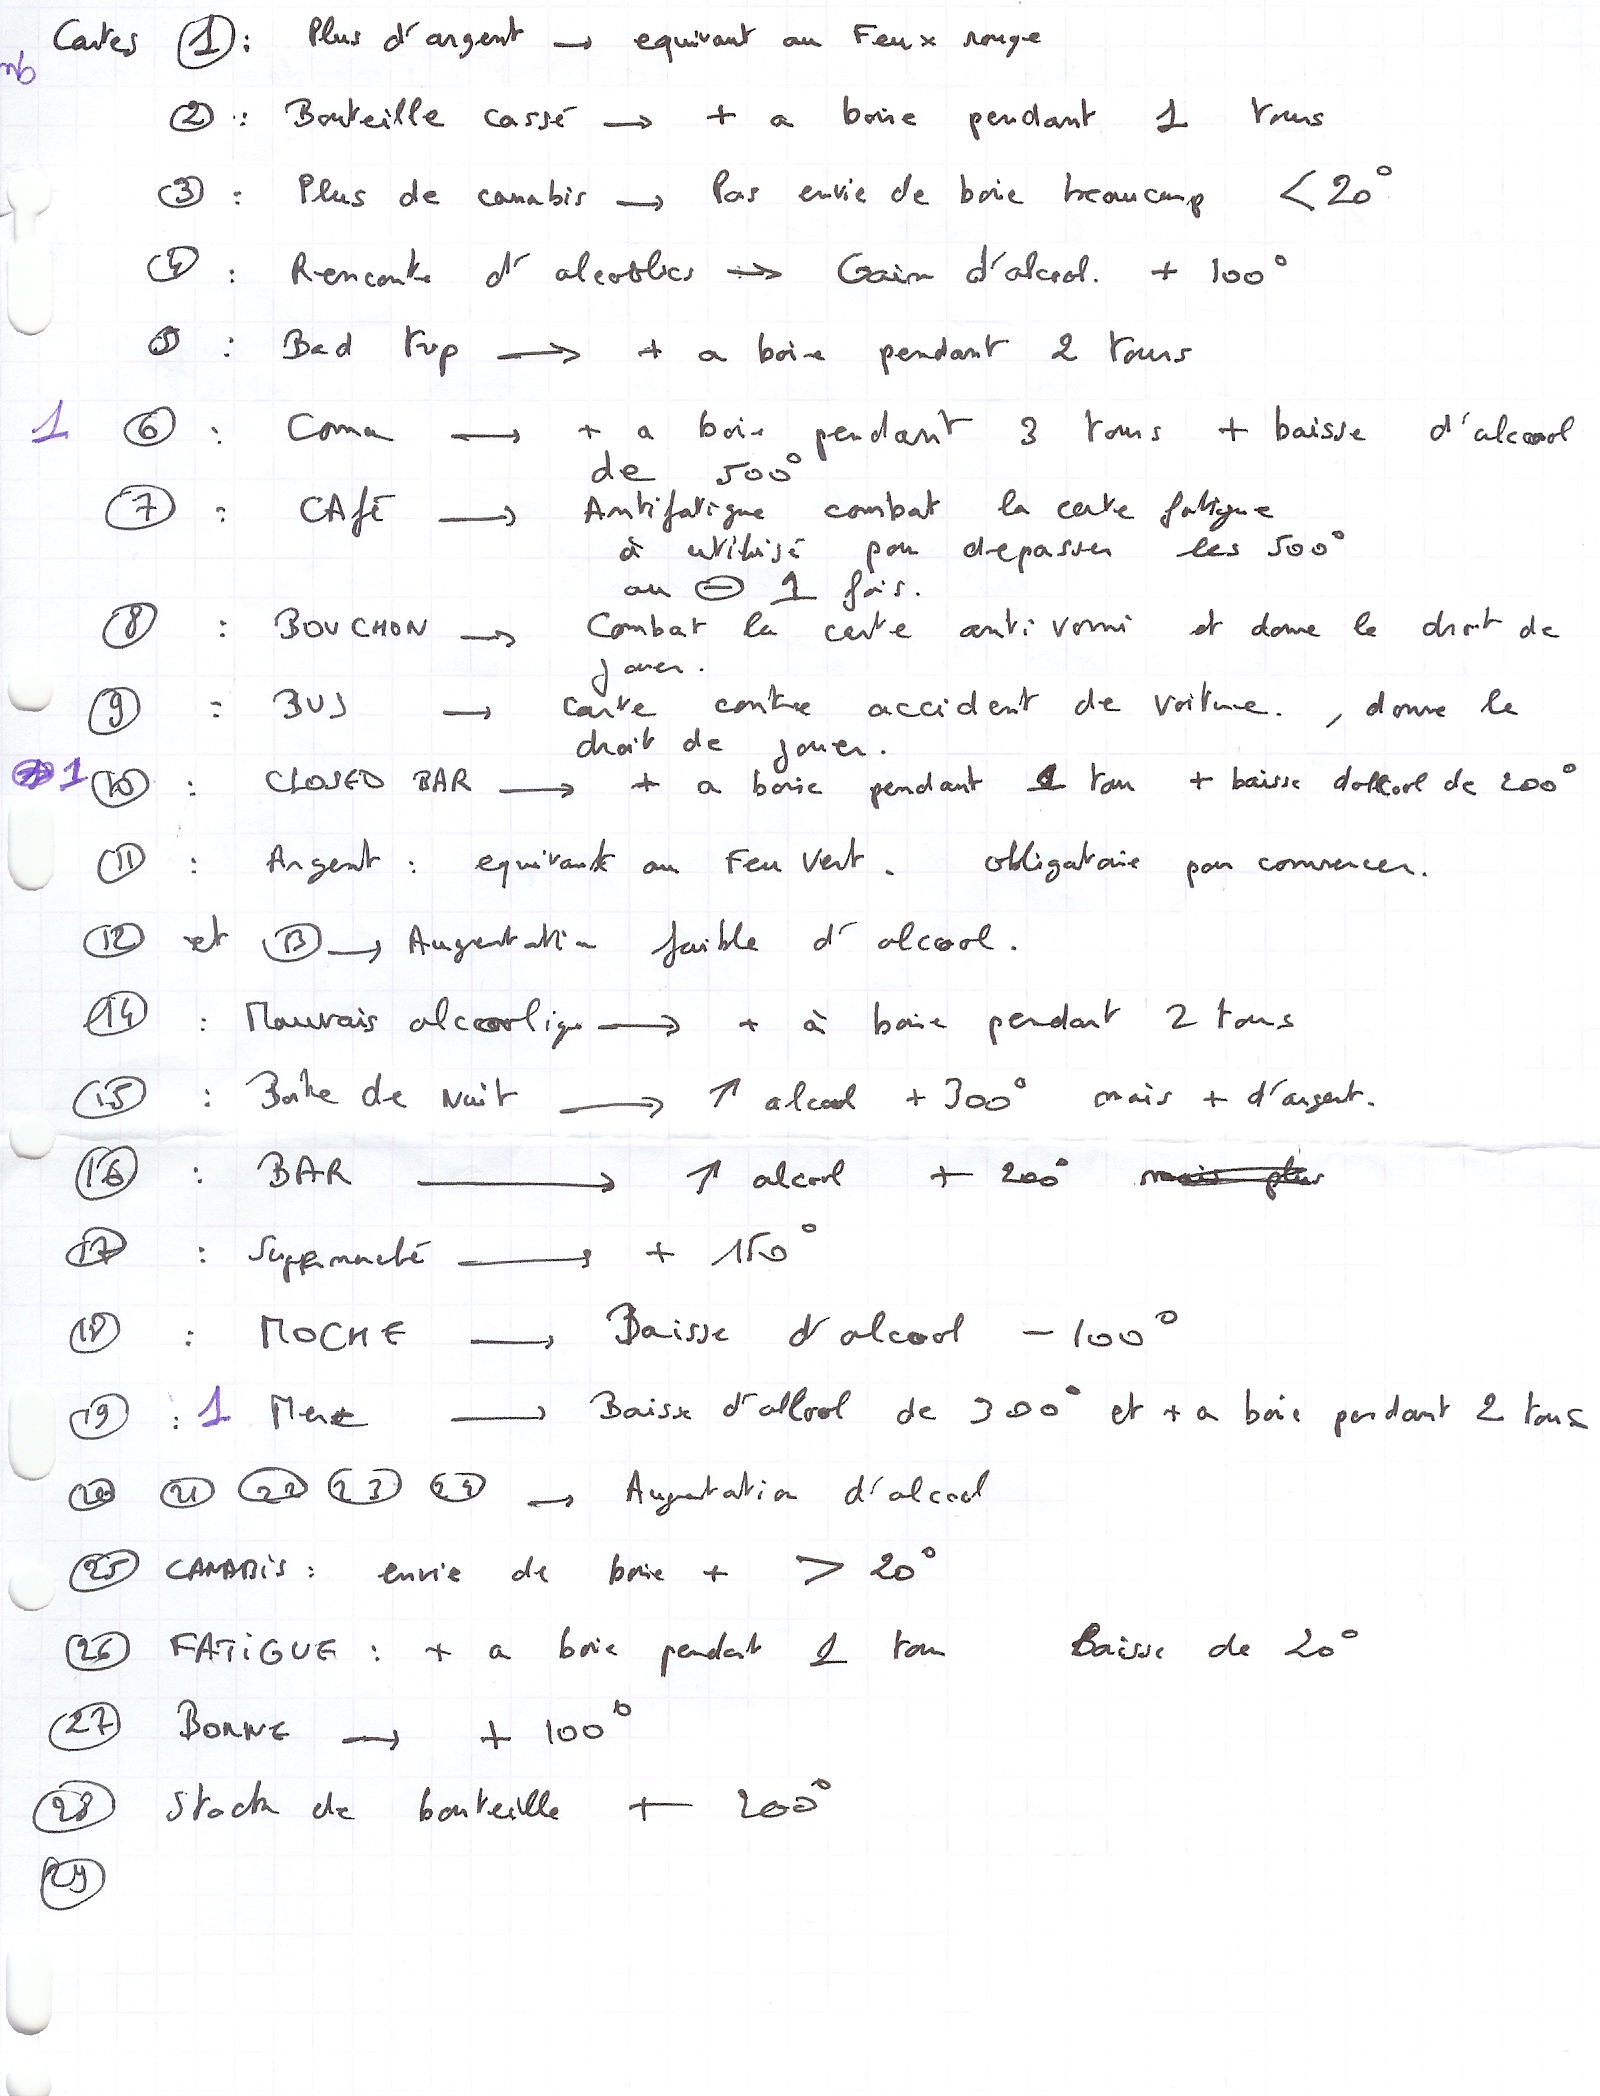 Cartes 1 : Plus d'argent → equivant au Feux rouge
nb
2 : Bouteille cassé → + a boire pendant 1 tours
3 : Plus de canabis → Pas envie de boire beaucoup < 20°
4 : Rencontre d' → Gain d'alcool. + 100°
5 : Bad trip → + a boire pendant 2 tours
1 6 : Coma → + a boire pendant 3 tours + baisse d'alcool
de 500°
7 : CAfé → Antifatigue combat la carte fatigue
à utilisé pour depasser les 500°
au ⊖ 1 fois.
8 : BOUCHON → Combat la carte anti vomi et donne le droit de
jouer.
9 : BUS → carte contre accident de voiture. , donne le
droit de jouer.
1 10 : CLOSED BAR → + a boire pendant 1 tour + baisse d'allcool de 200°
11 : Argent : equivant au Feu Vert. obligatoire pour commencer.
12 et 13 → Augentation faible d'alcool.
14 : Mauvais alcoolique → + à boire pendant 2 tours
15 : Boite de Nuit → ↑ alcool + 300° mais + d'argent.
16 : BAR → ↑ alcool + 200° mais plus
17 : Suppermaché → + 150°
18 : MOCHE → Baisse d'alcool - 100°
19 : 1 Mere → Baisse d'allcool de 300° et + a boire pendant 2 tours
20 21 22 23 24 → Augentation d'alcool
25 CANABiS : envie de boire + > 20°
26 FATiGUE : + a boire pendant 1 tour Baisse de 20°
27 BONNE → + 100°
28 Stock de bouteille + 200°
29